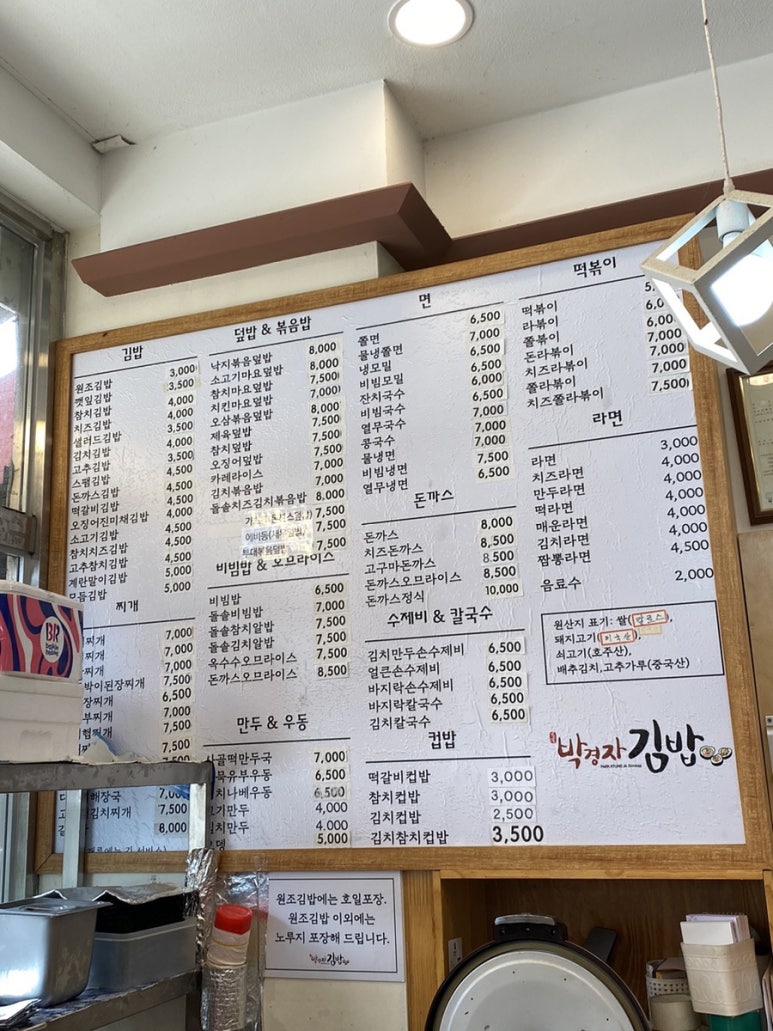 김밥
원조김밥 3,000
깻잎김밥 3,500
참치김밥 4,000
치즈김밥 4,000
샐러드김밥 3,500
김치김밥 4,000
고추김밥 3,500
스팸김밥 4,500
돈까스김밥 4,500
떡갈비김밥 4,000
오징어진미채김밥 4,000
소고기김밥 4,500
참치치즈김밥 4,500
고추참치김밥 4,500
계란말이김밥 5,000
모듬김밥 5,000
찌개
찌개 7,000
찌개 7,000
박이된장찌개 7,000
장찌개 6,500
부찌개 7,000
찌개 7,500
7,500
해장국 7,000
김치찌개 7,500
8,000
덮밥 & 볶음밥
낙지볶음덮밥 8,000
소고기마요덮밥 8,000
참치마요덮밥 7,500
치킨마요덮밥 7,000
오삼볶음덮밥 8,000
제육덮밥 7,500
참치덮밥 7,500
오징어덮밥 7,500
카레라이스 7,000
김치볶음밥 7,000
돌솥치즈김치볶음밥 8,000
7,500
7,500
7,500
비빔밥 & 오므라이스
비빔밥 6,500
돌솥비빔밥 7,000
돌솥참치알밥 7,500
돌솥김치알밥 7,500
옥수수오므라이스 7,500
돈까스오므라이스 8,500
만두 & 우동
사골떡만둣국 7,000
묵유부우동 6,500
치나베우동 6,500
고기만두 4,000
김치만두 4,000
오뎅 5,000
면
쫄면 6,500
물냉쫄면 7,000
냉모밀 6,500
비빔모밀 6,500
잔치국수 6,000
비빔국수 6,500
열무국수 7,000
콩국수 7,000
물냉면 7,000
비빔냉면 7,500
열무냉면 6,500
돈까스
돈까스 8,000
치즈돈까스 8,500
고구마돈까스 8,500
돈까스오므라이스 8,500
돈까스정식 10,000
수제비 & 칼국수
김치만두손수제비 6,500
얼큰손수제비 6,500
바지락손수제비 6,500
바지락칼국수 6,500
김치칼국수 6,500
컵밥
떡갈비컵밥 3,000
참치컵밥 3,000
김치컵밥 2,500
김치참치컵밥 3,500
떡볶이
떡볶이
라볶이
쫄볶이 6,000
돈라볶이 7,000
치즈라볶이 7,000
쫄라볶이 7,000
치즈쫄라볶이 7,500
라면
라면 3,000
치즈라면 4,000
만두라면 4,000
떡라면 4,000
매운라면 4,000
김치라면 4,000
짬뽕라면 4,500
음료수 2,000
원산지 표기: 쌀(칼로스),
돼지고기(미국산),
쇠고기(호주산),
배추김치,고추가루(중국산)
박경자김밥
원조김밥에는 호일포장.
원조김밥 이외에는
노루지 포장해 드립니다.
박경자김밥
BR
baskin robbins